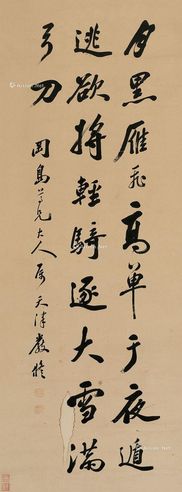 月黑雁飛高單于夜遁
逃欲將輕騎逐大雪滿
弓刀
岡島兄大人屬 天津嚴修